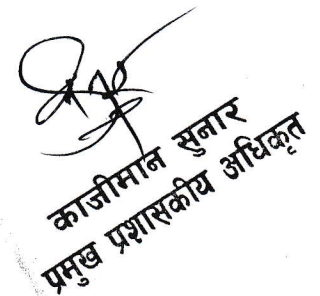 काजीमान सुनार
प्रमुख प्रशासकीय अधिकृत